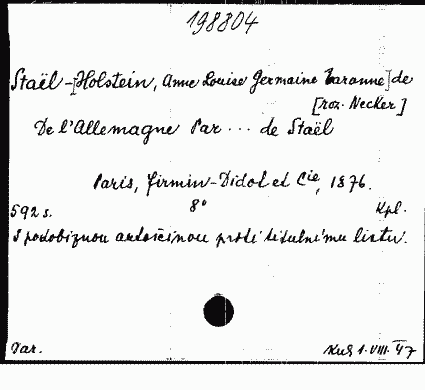 198804
Staël-[Holstein, Anne Louise Germaine baronne] de
[roz. Necker]
De l'Allemagne Par ... de Staël
Paris, Firmin-Didot et Cie, 1876.
592 s. 8° Kpl.
S podobiznou autorčinou proti titulnímu listu.
Var. 1.VIII.47